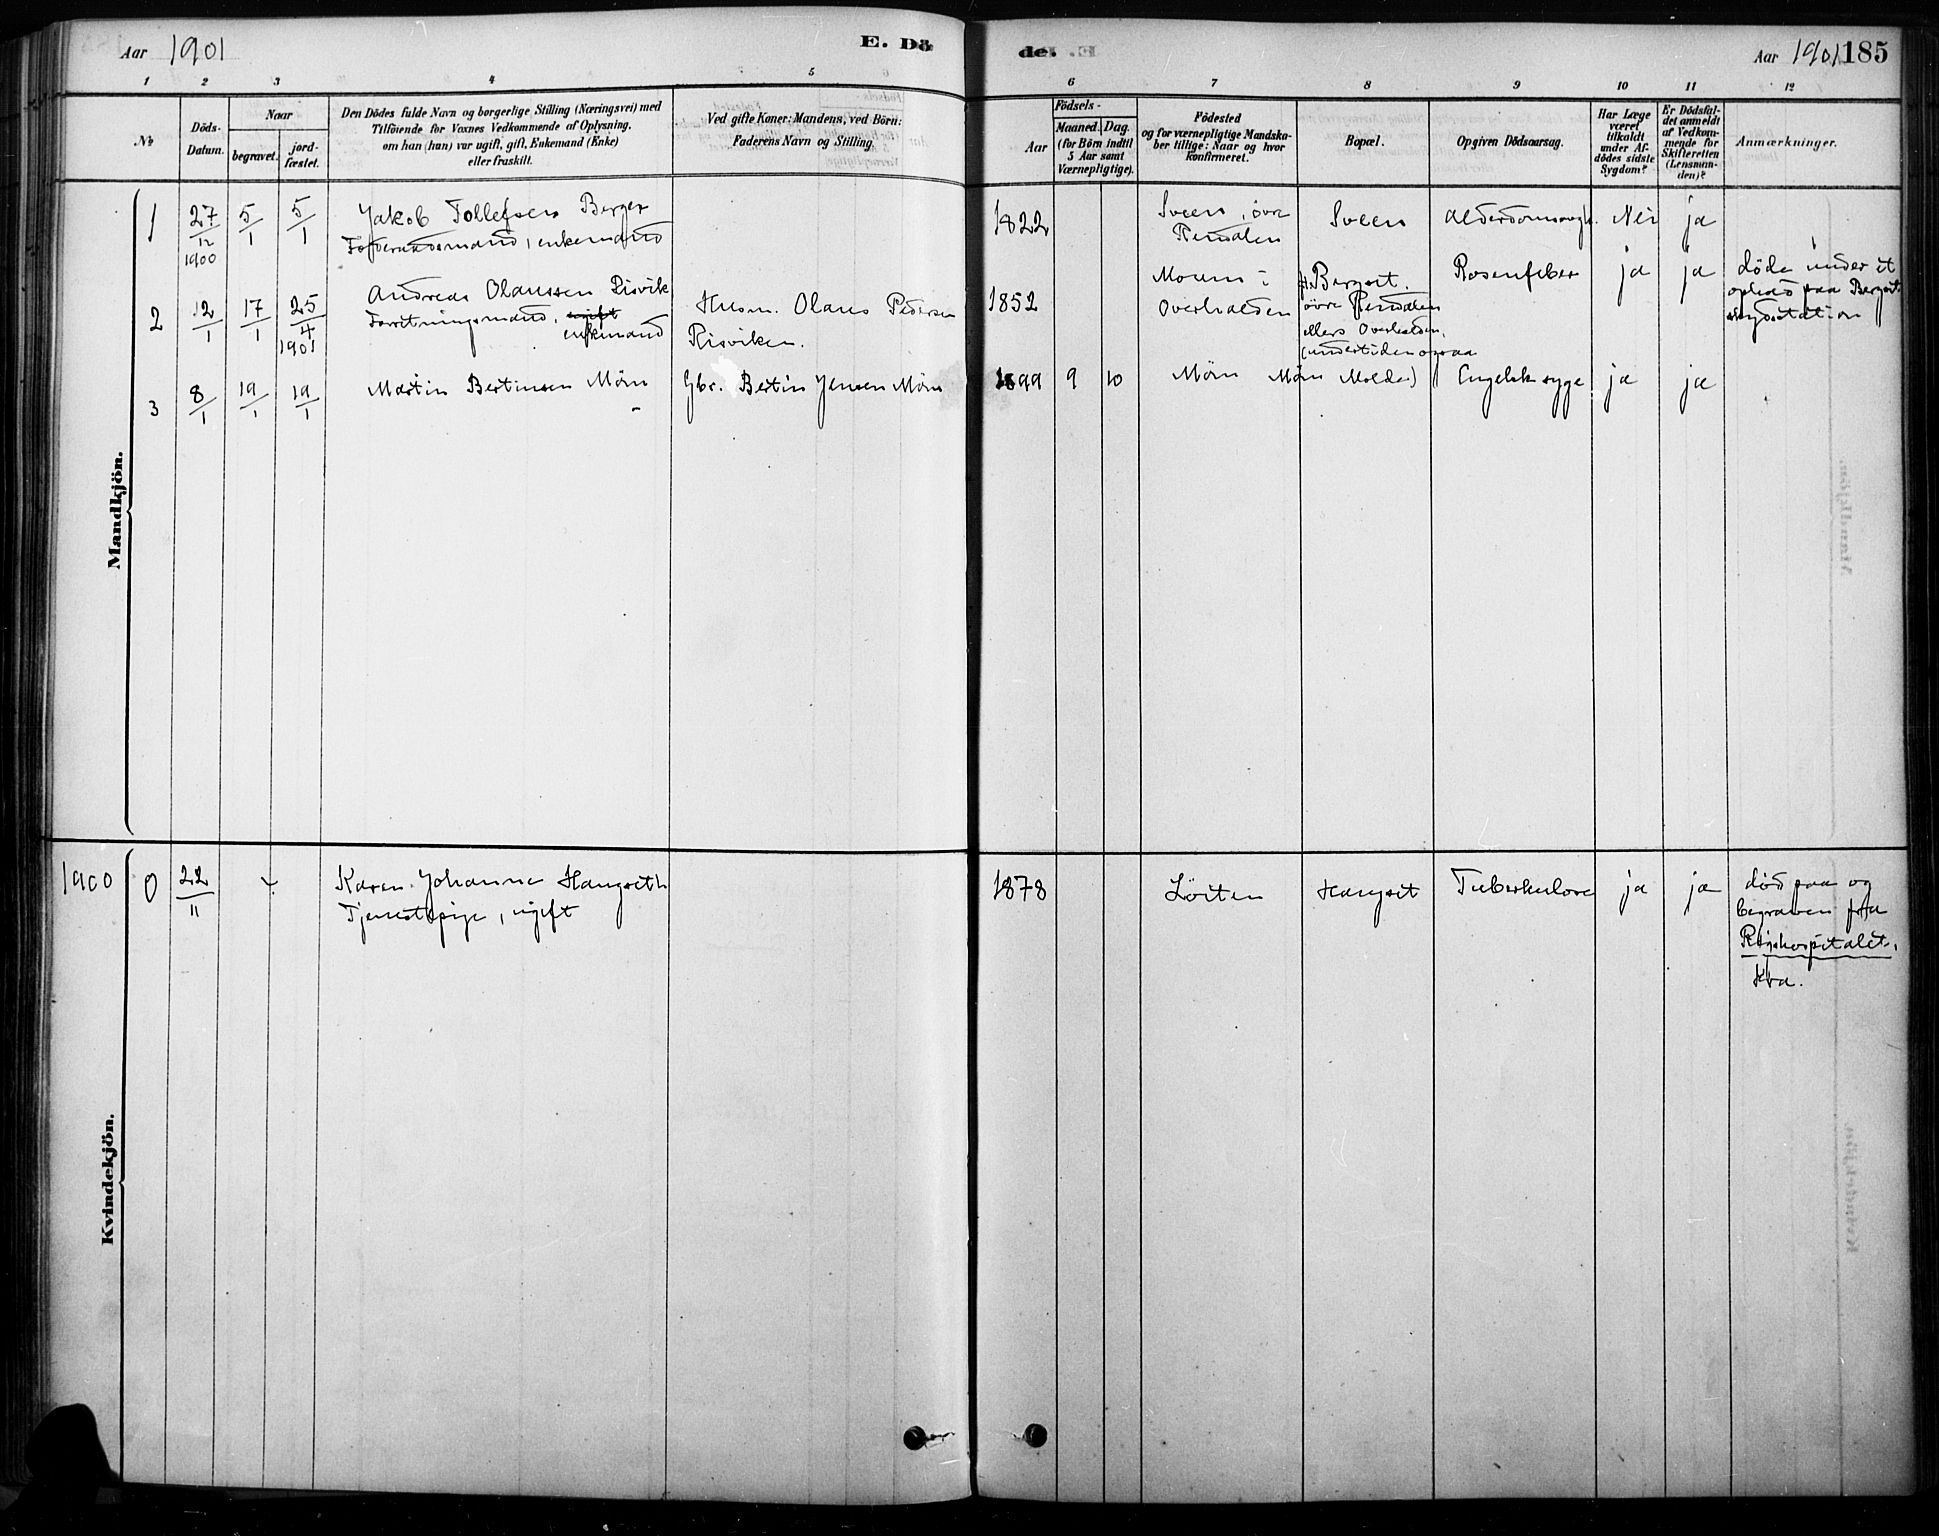 Aar 1901
E. Dö
de.
Aar 1901 185
1 2 3 4 5 6 7 8 9 10 11 12
No
Döds-
Datum.
Naar
begravet.
jord-
fæstet.
Den Dödes fulde Navn og borgerlige Stilling (Næringsvei) med
Tilföiende for Voxnes Vedkommende af Oplysning,
om han (hun) var ugift, gift, Enkemand (Enke)
eller fraskilt.
Ved gifte Koner: Mandens, ved Börn:
Faderens Navn og Stilling.
Födsels-
Aar
Maaned. Dag.
(for Börn indtil
5 Aar samt
Værnepligtige).
Födested
og for værnepligtige Mandska-
ber tillige: Naar og hvor
konfirmeret.
Bopæl.
Opgiven Dödsaarsag.
Har Læge
været
tilkaldt
under Af-
dödes sidste
Sygdom?
Er Dödsfal-
det anmeldt
af Vedkom-
mende for
Skifteretten
(Lensman-
den)?
Anmærkninger.
Mandkjön.
1 27/12 1900 5/1 5/1 Jakob Tollefsen Berger
enkemand
1822 Sveen, övre
Rendalen
Sveen Alderdomssvagh. Nei ja
2 12/1 17/1 25/4 1901 Andreas Olaussen Risvik
Forretningsmand, ugift
enkemand
Husm. Olaus Pedersen
Risviken.
1852 Moum i
Overhalden
Bergset.
övre Rendalen
ellers Overhalden,
(undertiden ogsaa
Molde)
Rosenfeber ja ja döde under et
ophold paa Bergset
skydsstation
3 8/1 19/1 19/1 Martin Bertinsen Mörn
Gbr. Bertin Jensen Mörn
1899 9 10 Mörn Mörn Engelsk syge ja ja
Kvindekjön.
1900 0 22/11 Karen Johanne Hangseth
Tjenestepige, ugift
1878 Löiten Hangset Tuberkulose ja ja död paa og
begraven fra
Rigshospitalet,
Kra.